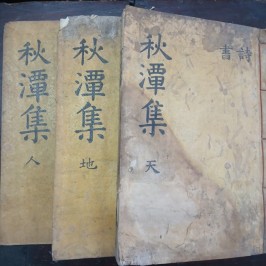 秋潭集 天
詩
書
秋潭集 地
秋潭集 人